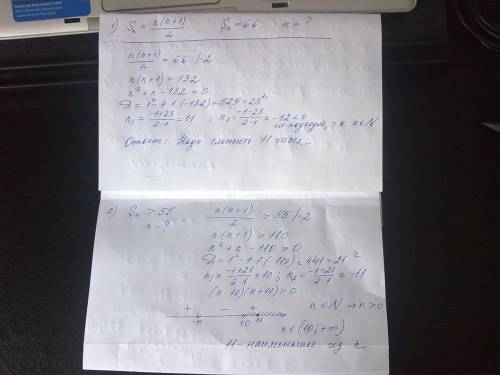 1) Sₙ = n(n+1)/2   Sₙ = 66   n = ?
n(n+1)/2 = 66 /·2
n(n+1) = 132
n² + n - 132 = 0
Д = 1² - 4·1·(-132) = 529 = 23²
n₁ = (-1+23)/(2·1) = 11 ; n₂ = (-1-23)/(2·1) = -12 < 0
не подходит, т.к. n∈N
Ответ: Надо сложить 11 чисел
2) Sₙ > 55   n(n+1)/2 > 55 /·2
n - ?
n(n+1) > 110
n² + n - 110 > 0
Д = 1² - 4·1·(-110) = 441 = 21²
n₁ = (-1+21)/(2·1) = 10 ; n₂ = (-1-21)/(2·1) = -11
(n-10)(n+11) > 0
+ - +   n∈N ⇒ n > 0
-11 10 11
n∈(10; +∞)
11 - наименьшее n.